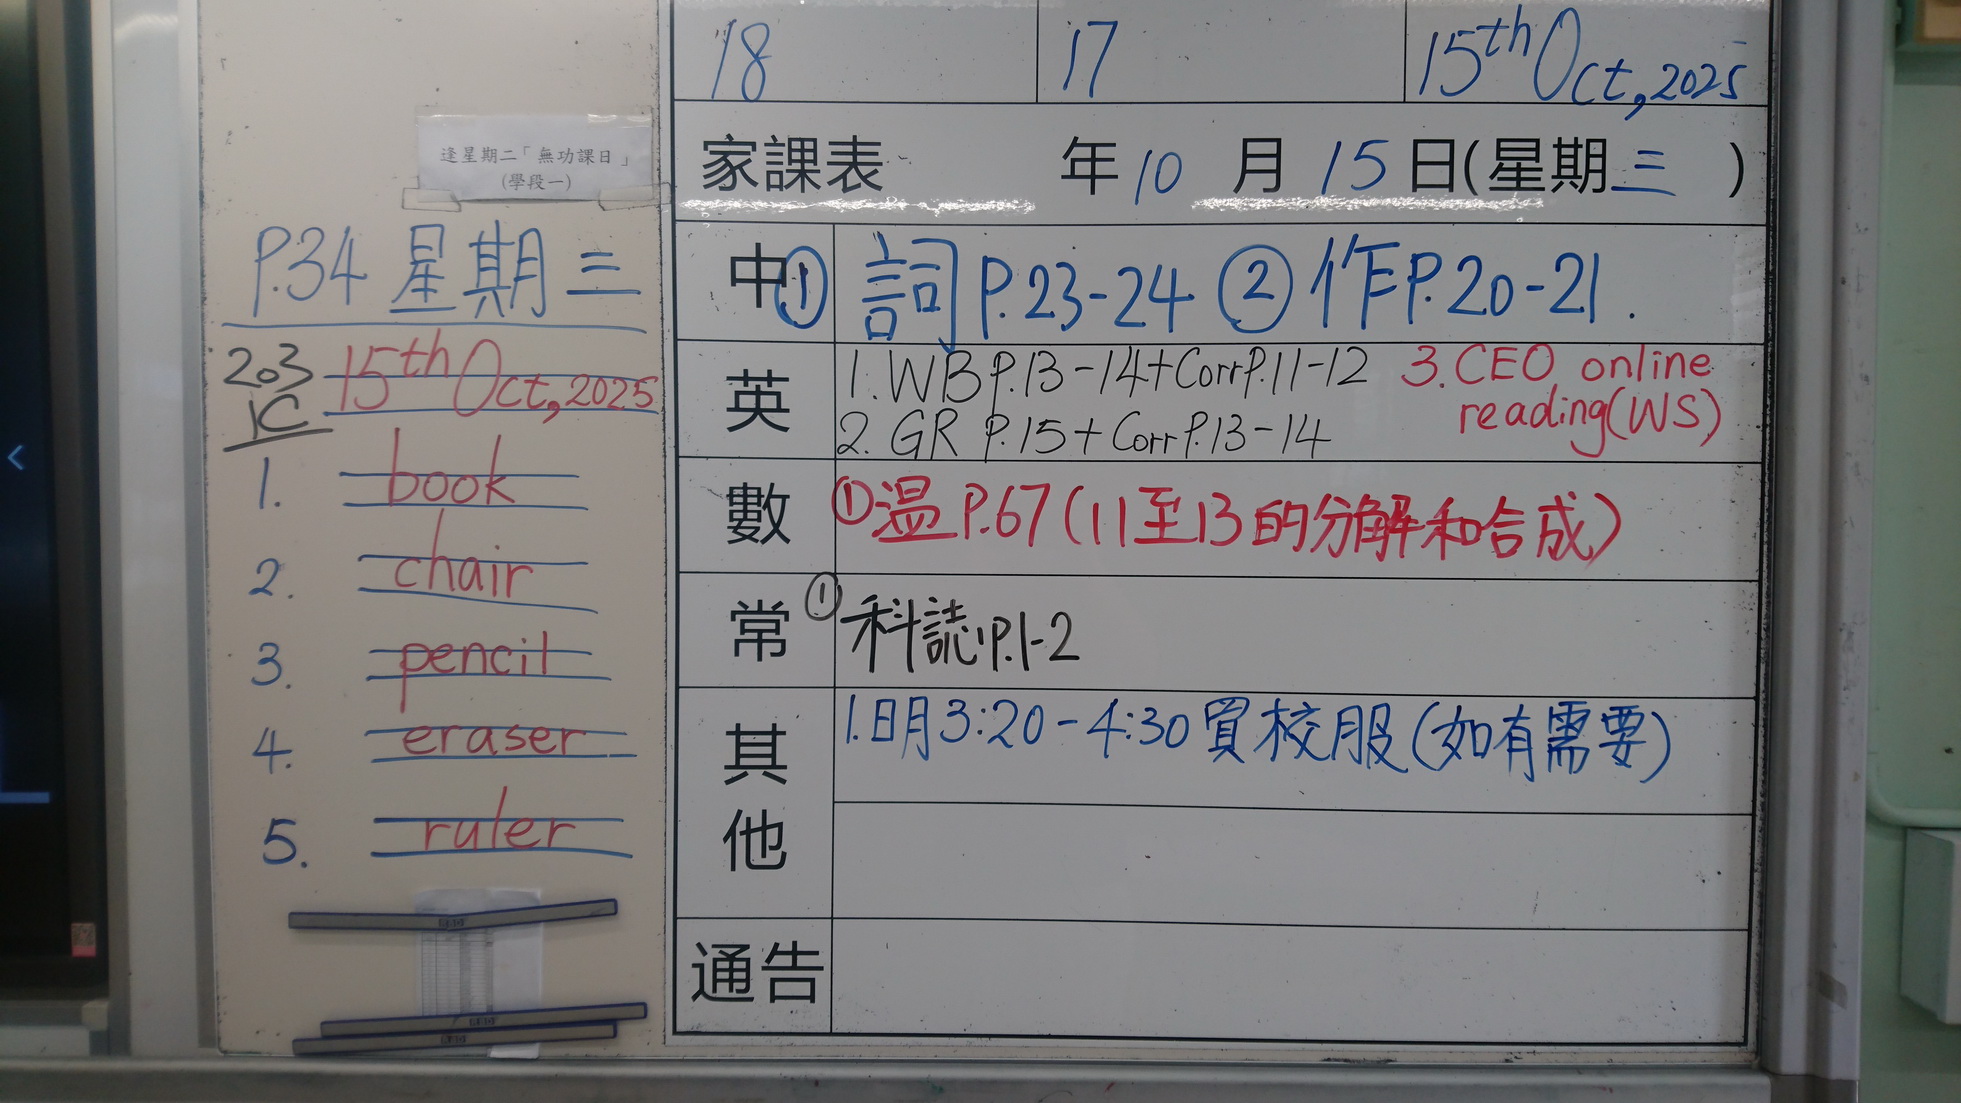 逢星期二「無功課日」
(學段一)
P.34 星期三
203
1C
15th Oct, 2025
1. book
2. chair
3. pencil
4. eraser
5. ruler
18 17 15th Oct, 2025
家課表 年10月15日(星期三)
中 ① 詞P.23-24 ② 作P.20-21.
英 1. WB P.13-14+Corr P.11-12 3. CEO online
reading(WS)
2. GR P.15+Corr P.13-14
數 ①温P.67(11至13的分解和合成)
常 ①科誌P.1-2
其他 1.明3:20-4:30買校服(如有需要)
通告